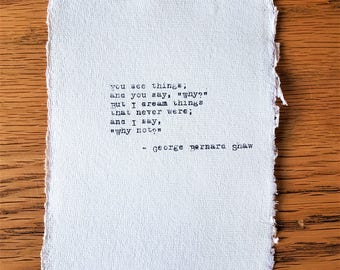 you see things;
and you say, "Why?"
But I dream things
that never were;
and I say,
"Why not?"
- George Bernard Shaw